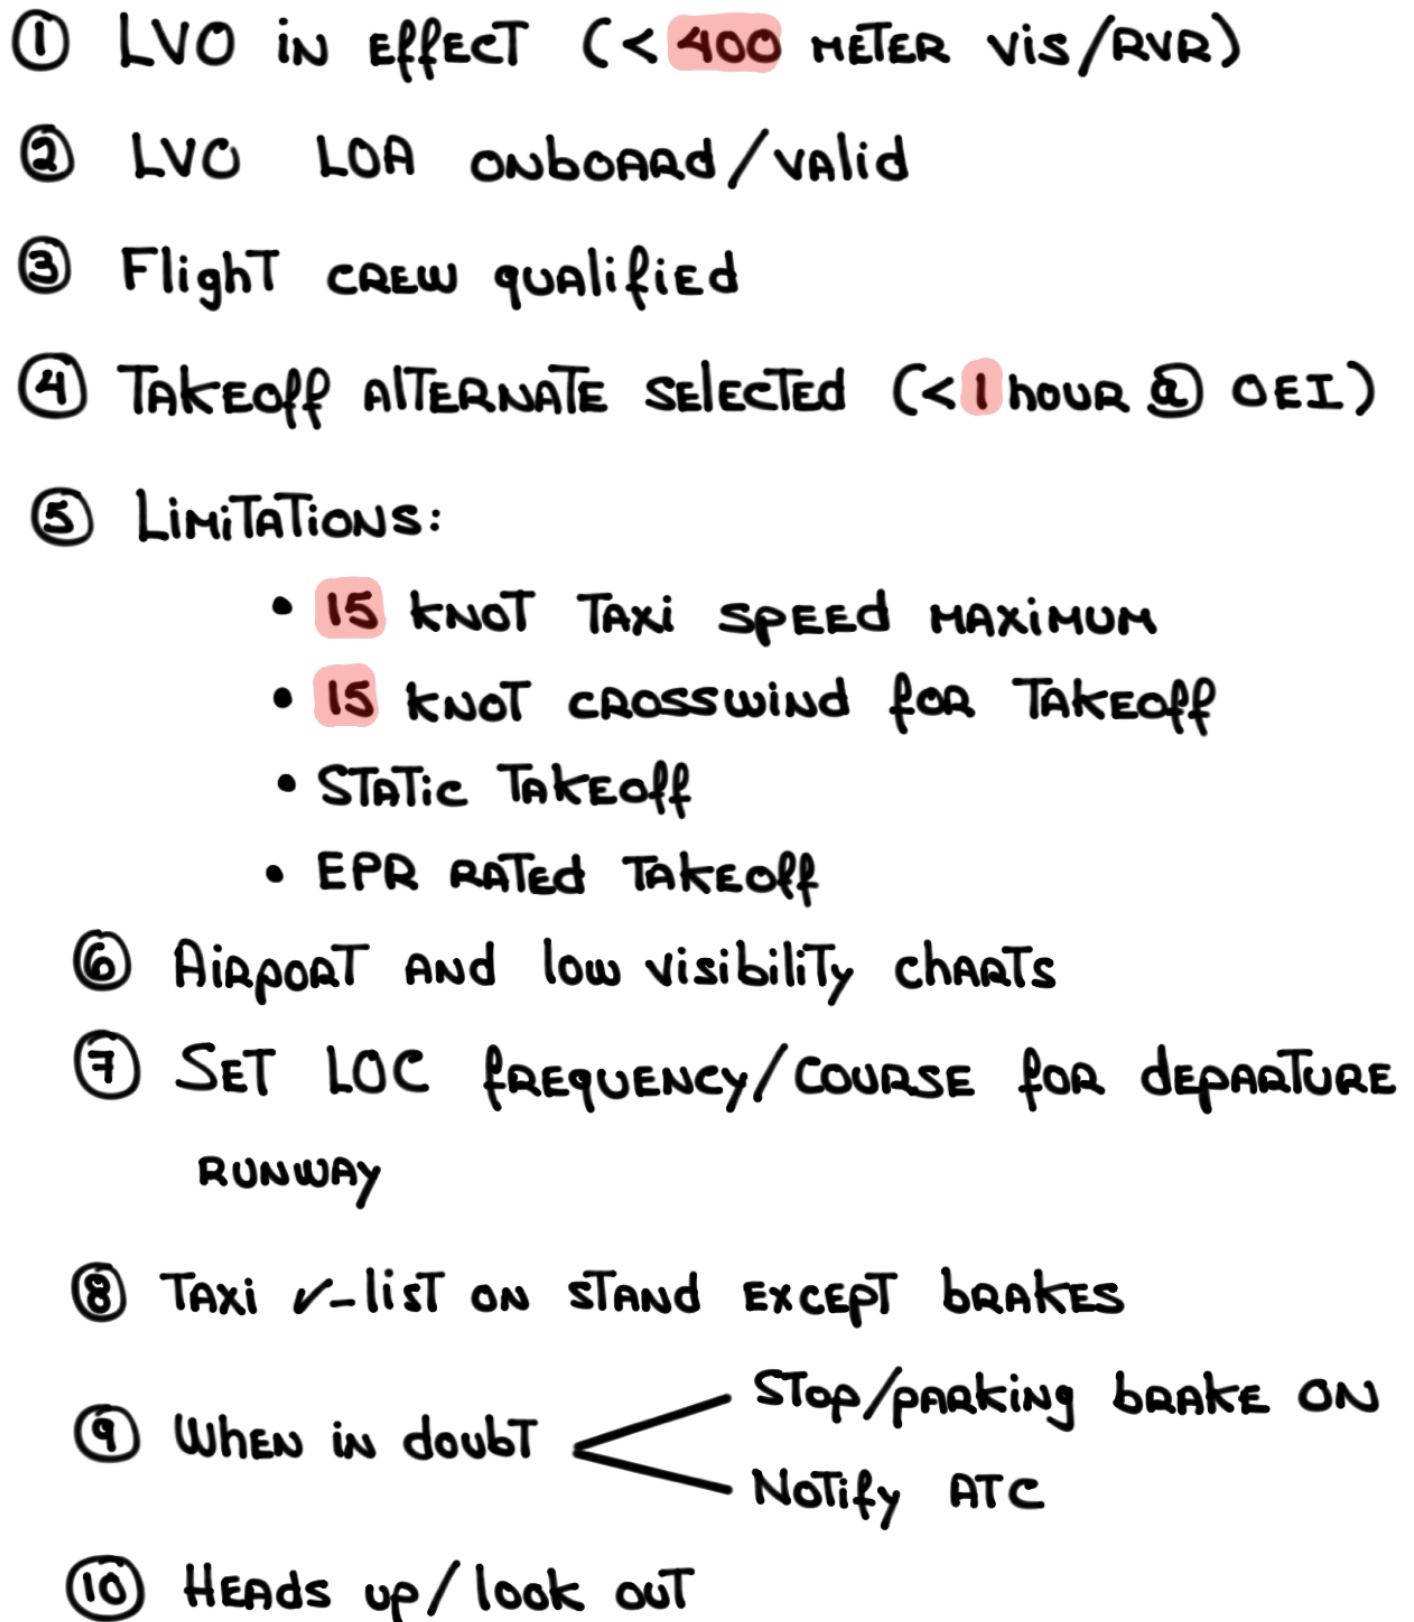 ① LVO in effect (< 400 meter vis/RVR)
② LVO LOA onboard/valid
③ Flight crew qualified
④ Takeoff alternate selected (< 1 hour @ OEI)
⑤ Limitations:
• 15 knot taxi speed maximum
• 15 knot crosswind for takeoff
• Static takeoff
• EPR rated takeoff
⑥ Airport and low visibility charts
⑦ Set LOC frequency/course for departure
runway
⑧ Taxi ✓-list on stand except brakes
⑨ When in doubt
Stop/parking brake ON
Notify ATC
⑩ Heads up/look out